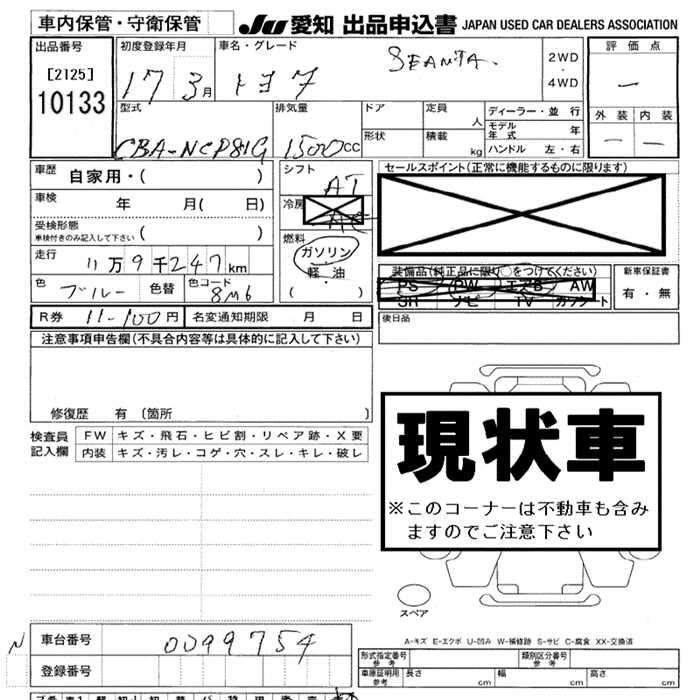 車内保管・守衛保管
JU 愛知 出品申込書 JAPAN USED CAR DEALERS ASSOCIATION
出品番号 初度登録年月 車名・グレード 評価点
[2125] 17 3月 トヨタ 2WD・4WD
10133
型式 排気量 ドア 定員 人 ディーラー・並行 外装 内装
モデル年式 年
CBA-NCP81G 1500cc 形状 積載 kg ハンドル 左・右
車歴 自家用・( ) シフト AT セールスポイント(正常に機能するものに限ります)
車検 年 月( 日) 冷房
受検形態
車検付きのみ記入して下さい ( ) 燃料
走行 11万9千247km ガソリン・軽油 ( ) 装備品(純正品に限り○をつけてください) 新車保証書
色 ブルー 色替 色コード 8M6 PS PW エアB AW 有・無
SR ナビ TV カワシート
R券 11-100円 名変通知期限 月 日 後日品
注意事項申告欄(不具合内容等は具体的に記入して下さい)
修復歴 有 〔箇所 〕
検査員記入欄 FW キズ・飛石・ヒビ割・リペア跡・X要
内装 キズ・汚レ・コゲ・穴・スレ・キレ・破レ
現状車
※このコーナーは不動車も含み
ますのでご注意下さい
スペア
A-キズ E-エクボ U-凹み W-補修跡 S-サビ C-腐食 XX-交換済
N 車台番号 0099754
登録番号
形式指定番号 参考 類別区分番号 参考
車庫証明用 参考 長さ cm 幅 cm 高さ cm